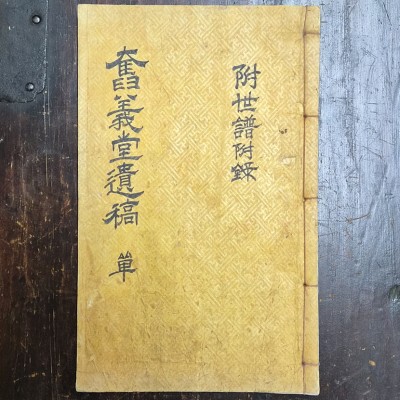 奮義堂遺稿 單
附世譜附錄